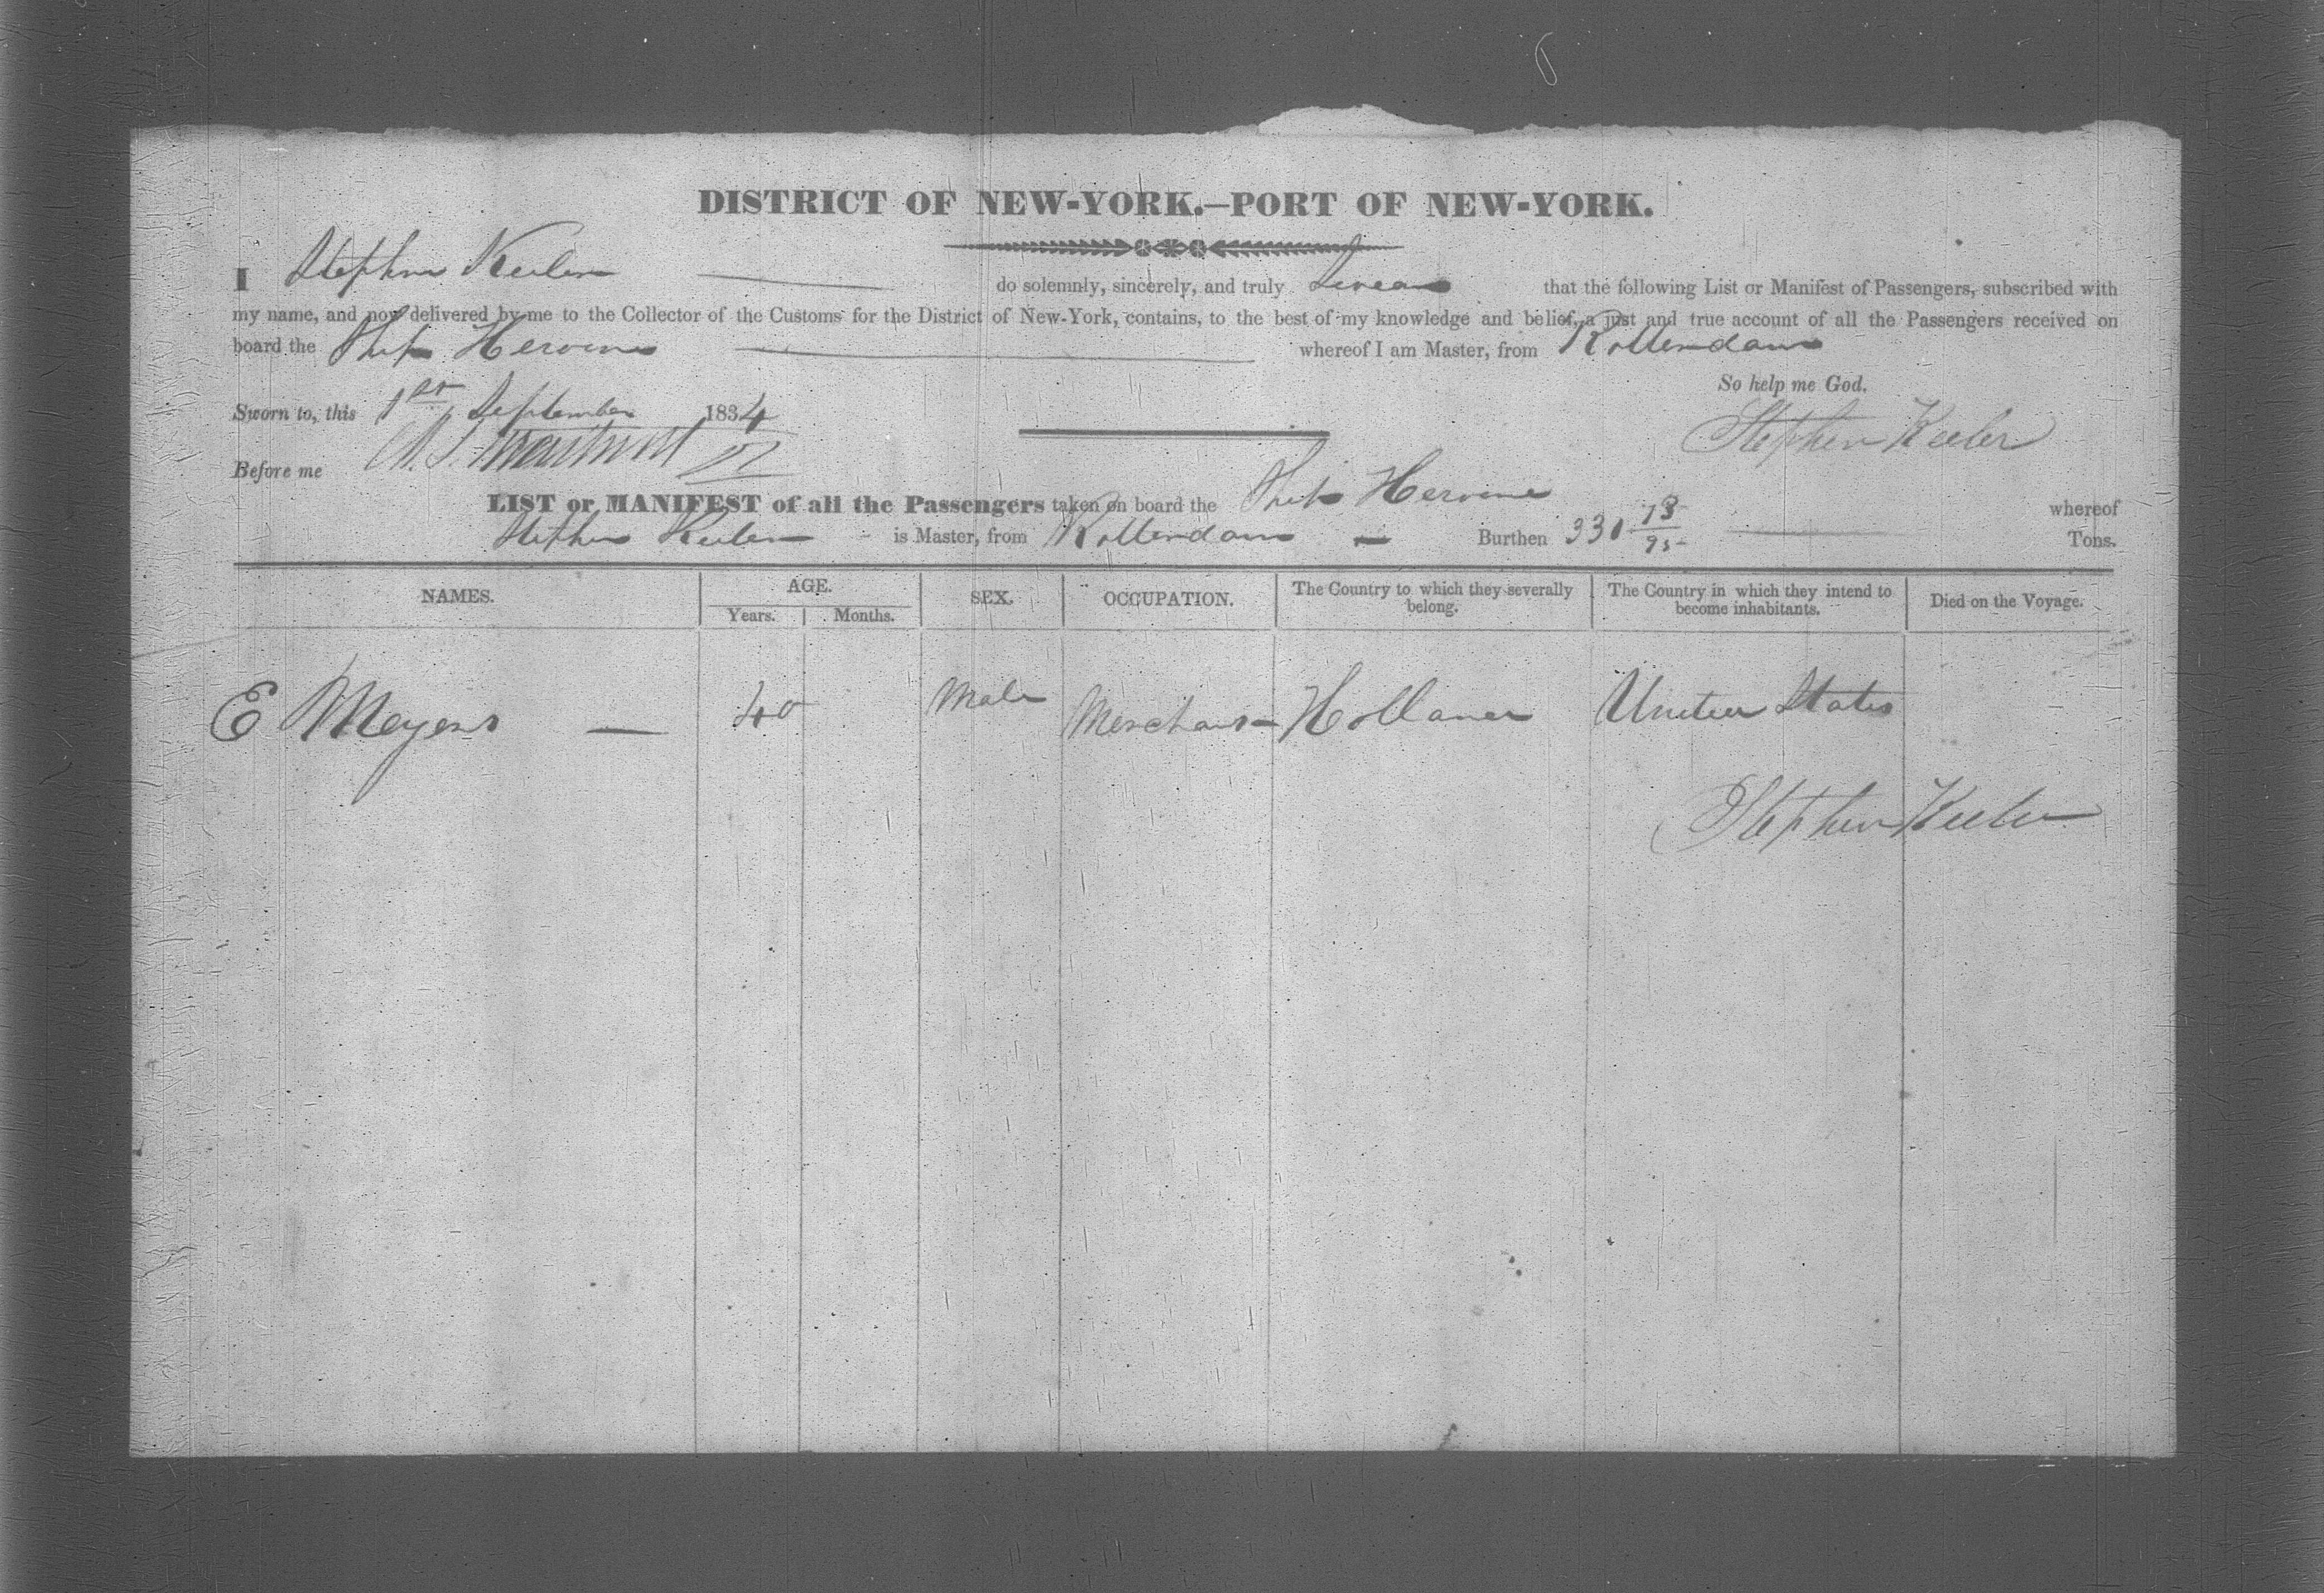 DISTRICT OF NEW-YORK.—PORT OF NEW-YORK.
I Stephen Keeler do solemnly, sincerely, and truly Swear that the following List or Manifest of Passengers, subscribed with
my name, and now delivered by me to the Collector of the Customs for the District of New-York, contains, to the best of my knowledge and belief, a just and true account of all the Passengers received on
board the Ship Heroine whereof I am Master, from Rotterdam
So help me God.
Sworn to, this 1st September 1834
Stephen Keeler
Before me
LIST or MANIFEST of all the Passengers taken on board the Ship Heroine whereof
Stephen Keeler is Master, from Rotterdam Burthen 330 73/95 Tons.
NAMES. AGE. Years. Months. SEX. OCCUPATION. The Country to which they severally belong. The Country in which they intend to become inhabitants. Died on the Voyage.
E Meyers — 40 Male Merchant Holland United States
Stephen Keeler